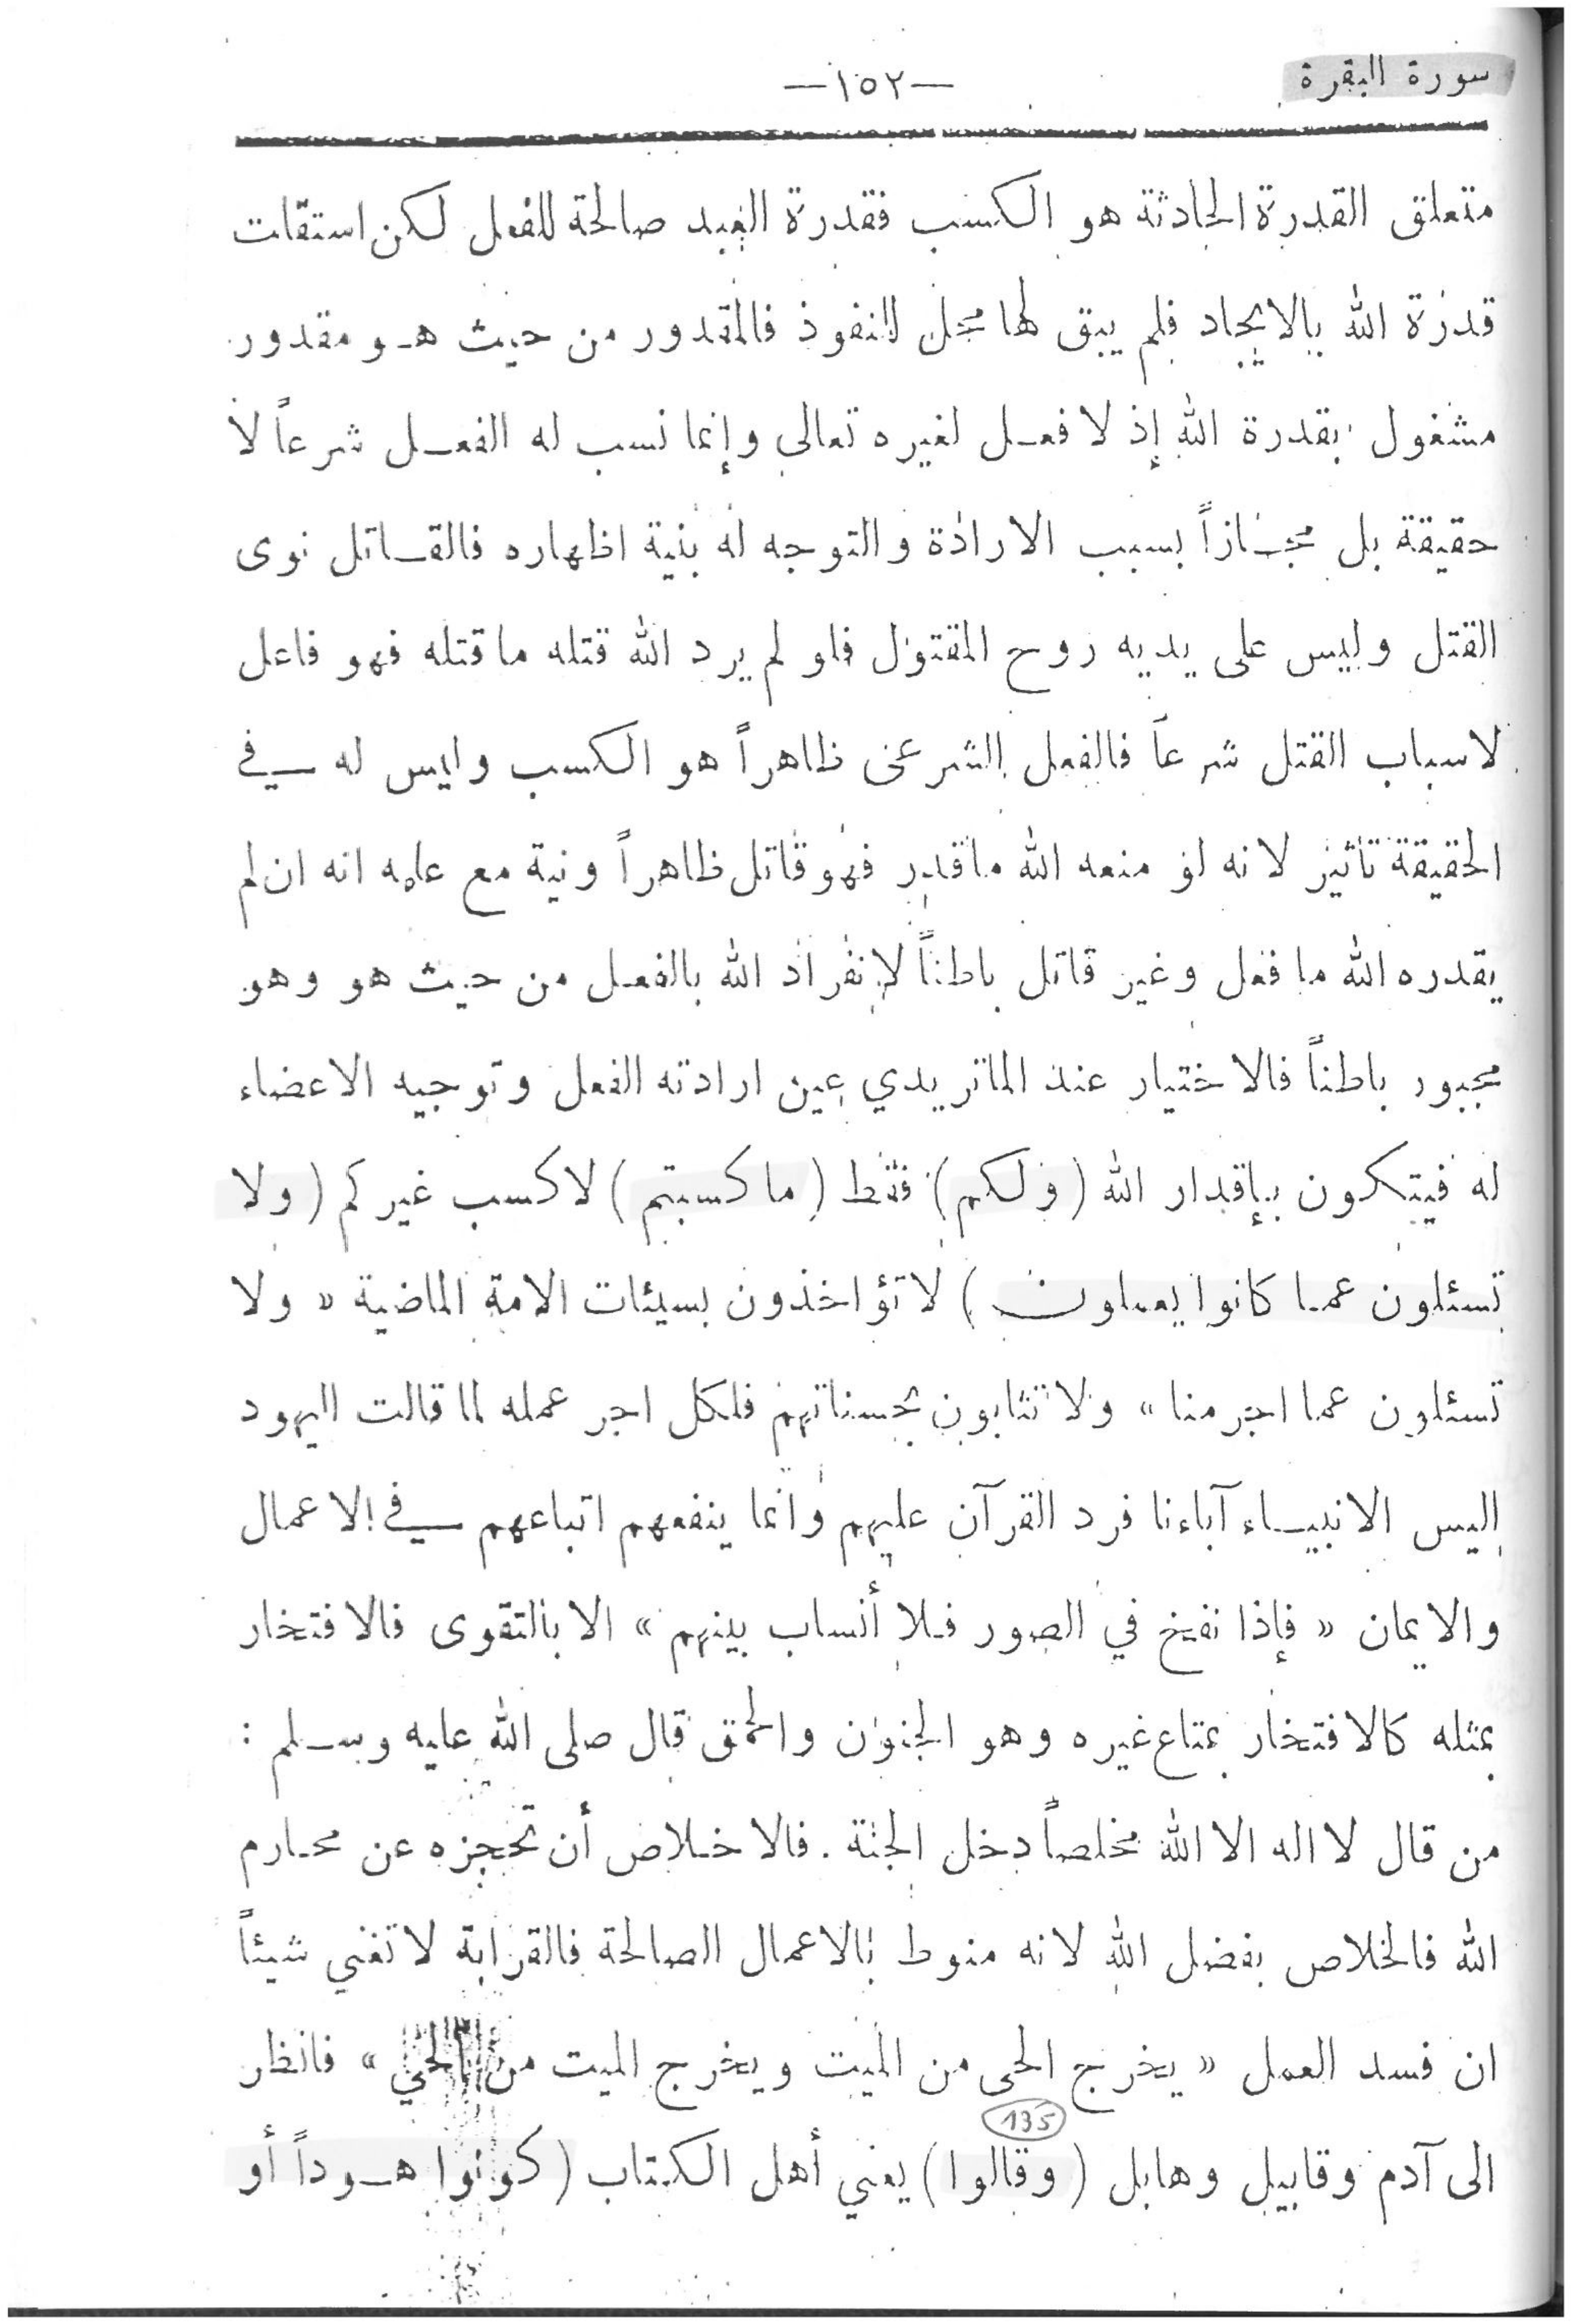 سورة البقرة
—١٥٢—
متعلق القدرة الحادثة هو الكسب فقدرة العبد صالحة للفعل لكن استقلت
قدرة الله بالايجاد فلم يبق لها محل للنفوذ فالمقدور من حيث هو مقدور
مشغول بقدرة الله إذ لا فعل لغيره تعالى وإنما نسب له الفعل شرعاً لا
حقيقة بل مجازاً بسبب الارادة والتوجه له بنية اظهاره فالقاتل نوى
القتل وليس على يديه روح المقتول فلو لم يرد الله قتله ما قتله فهو فاعل
لاسباب القتل شرعاً فالفعل الشرعي ظاهراً هو الكسب وليس له في
الحقيقة تأثير لانه لو منعه الله ما قدر فهو قاتل ظاهراً ونية مع علمه انه ان لم
يقدره الله ما فعل وغير قاتل باطناً لانفراد الله بالفعل من حيث هو وهو
مجبور باطناً فالاختيار عند الماتريدي عين ارادته الفعل وتوجيه الاعضاء
له فيتكون بإقدار الله (ولكم) فقط (ما كسبتم) لا كسب غيركم (ولا
تسئلون عما كانوا يعملون) لا تؤاخذون بسيئات الامة الماضية « ولا
تسئلون عما اجرمنا » ولا تثابون بحسناتهم فلكل اجر عمله لما قالت اليهود
اليس الانبياء آباءنا فرد القرآن عليهم وانما ينفعهم اتباعهم في الاعمال
والايمان « فإذا نفخ في الصور فلا أنساب بينهم » الا بالتقوى فالافتخار
بمثله كالافتخار بمتاع غيره وهو الجنون والحمق قال صلى الله عليه وسلم :
من قال لا اله الا الله مخلصاً دخل الجنة . فالاخلاص أن تحجزه عن محارم
الله فالخلاص بفضل الله لانه منوط بالاعمال الصالحة فالقرابة لا تغني شيئاً
ان فسد العمل « يخرج الحي من الميت ويخرج الميت من الحي » فانظر
135
الى آدم وقابيل وهابل (وقالوا) يعني أهل الكتاب (كونوا هوداً أو